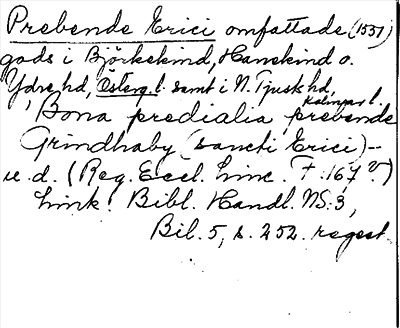 Prebende Erici omfattade (1551)
gods i Björkekind, Hanekind o.
Ydre hd, Österg. l. samt i N. Tjusk hd,
Kalmar l.
"Bona predialia prebende
Grindhaby (sancti Erici) --
u. d. (Reg. Eccl. Linc. F: 167 v.)
Link. Bibl. Handl. NS: 3,
Bil. 5, s. 252. regest